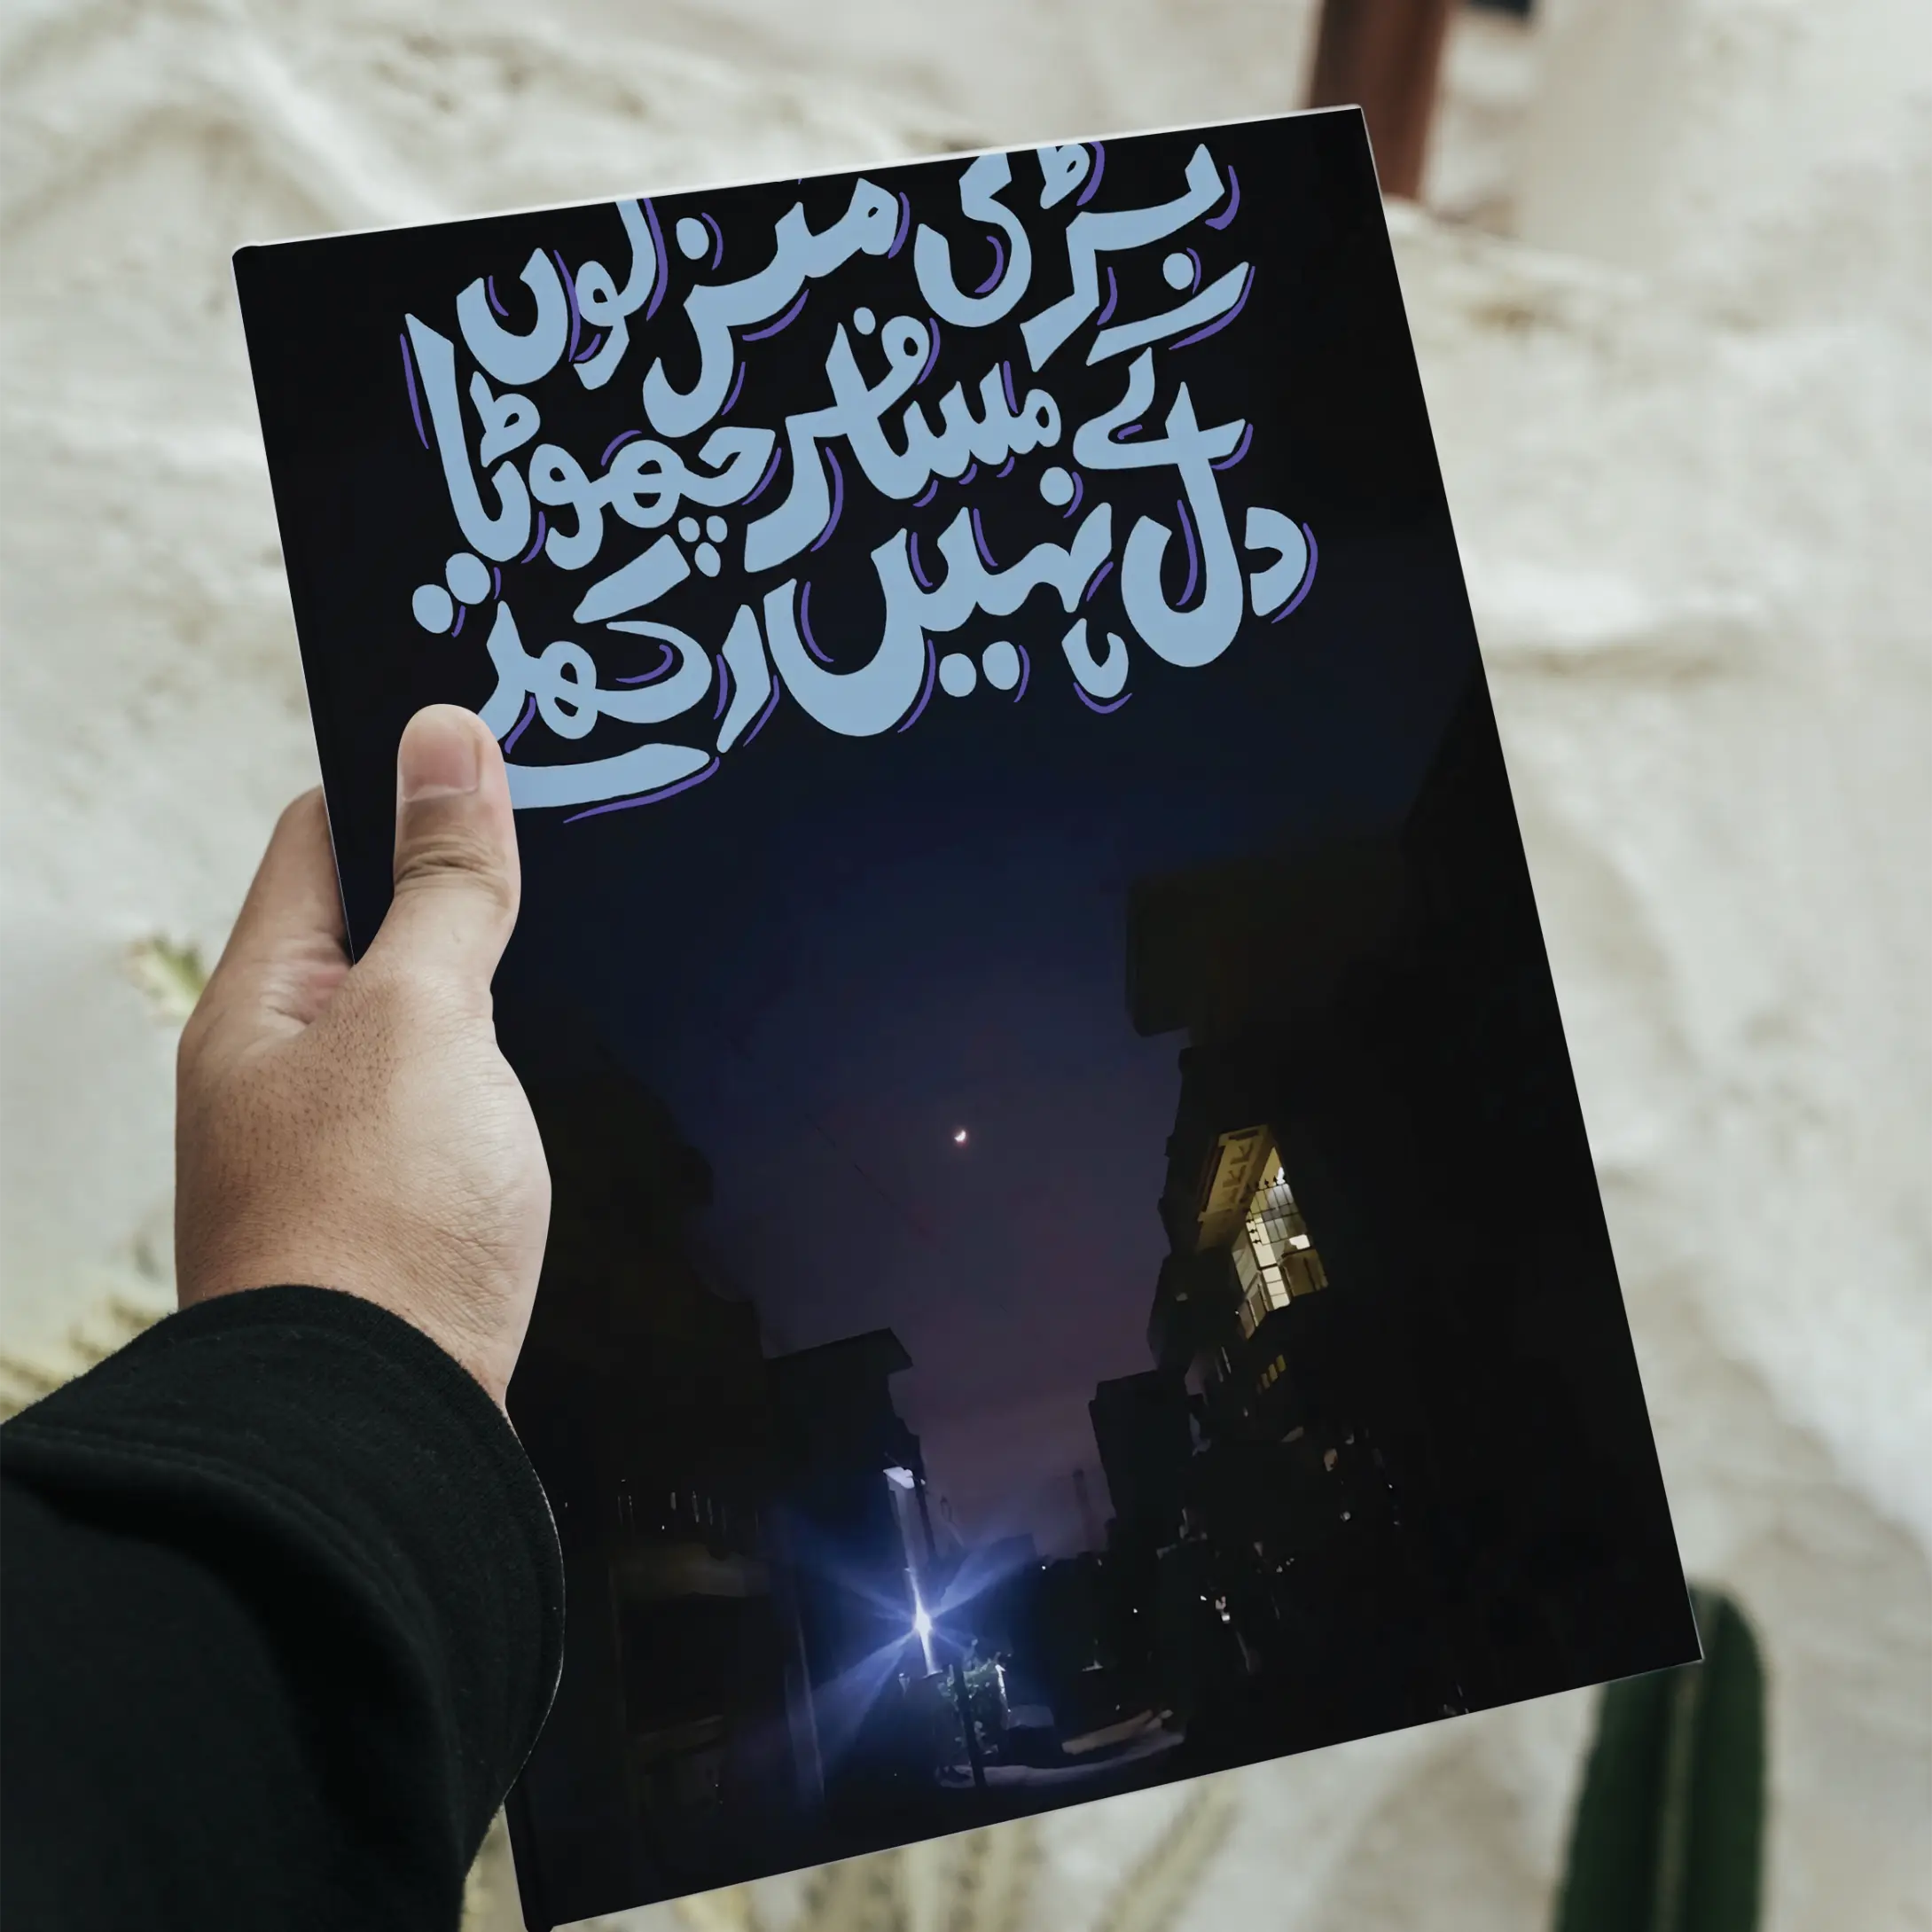 بڑی منزلوں
کے مسافر چھوٹا
دل نہیں رکھتے